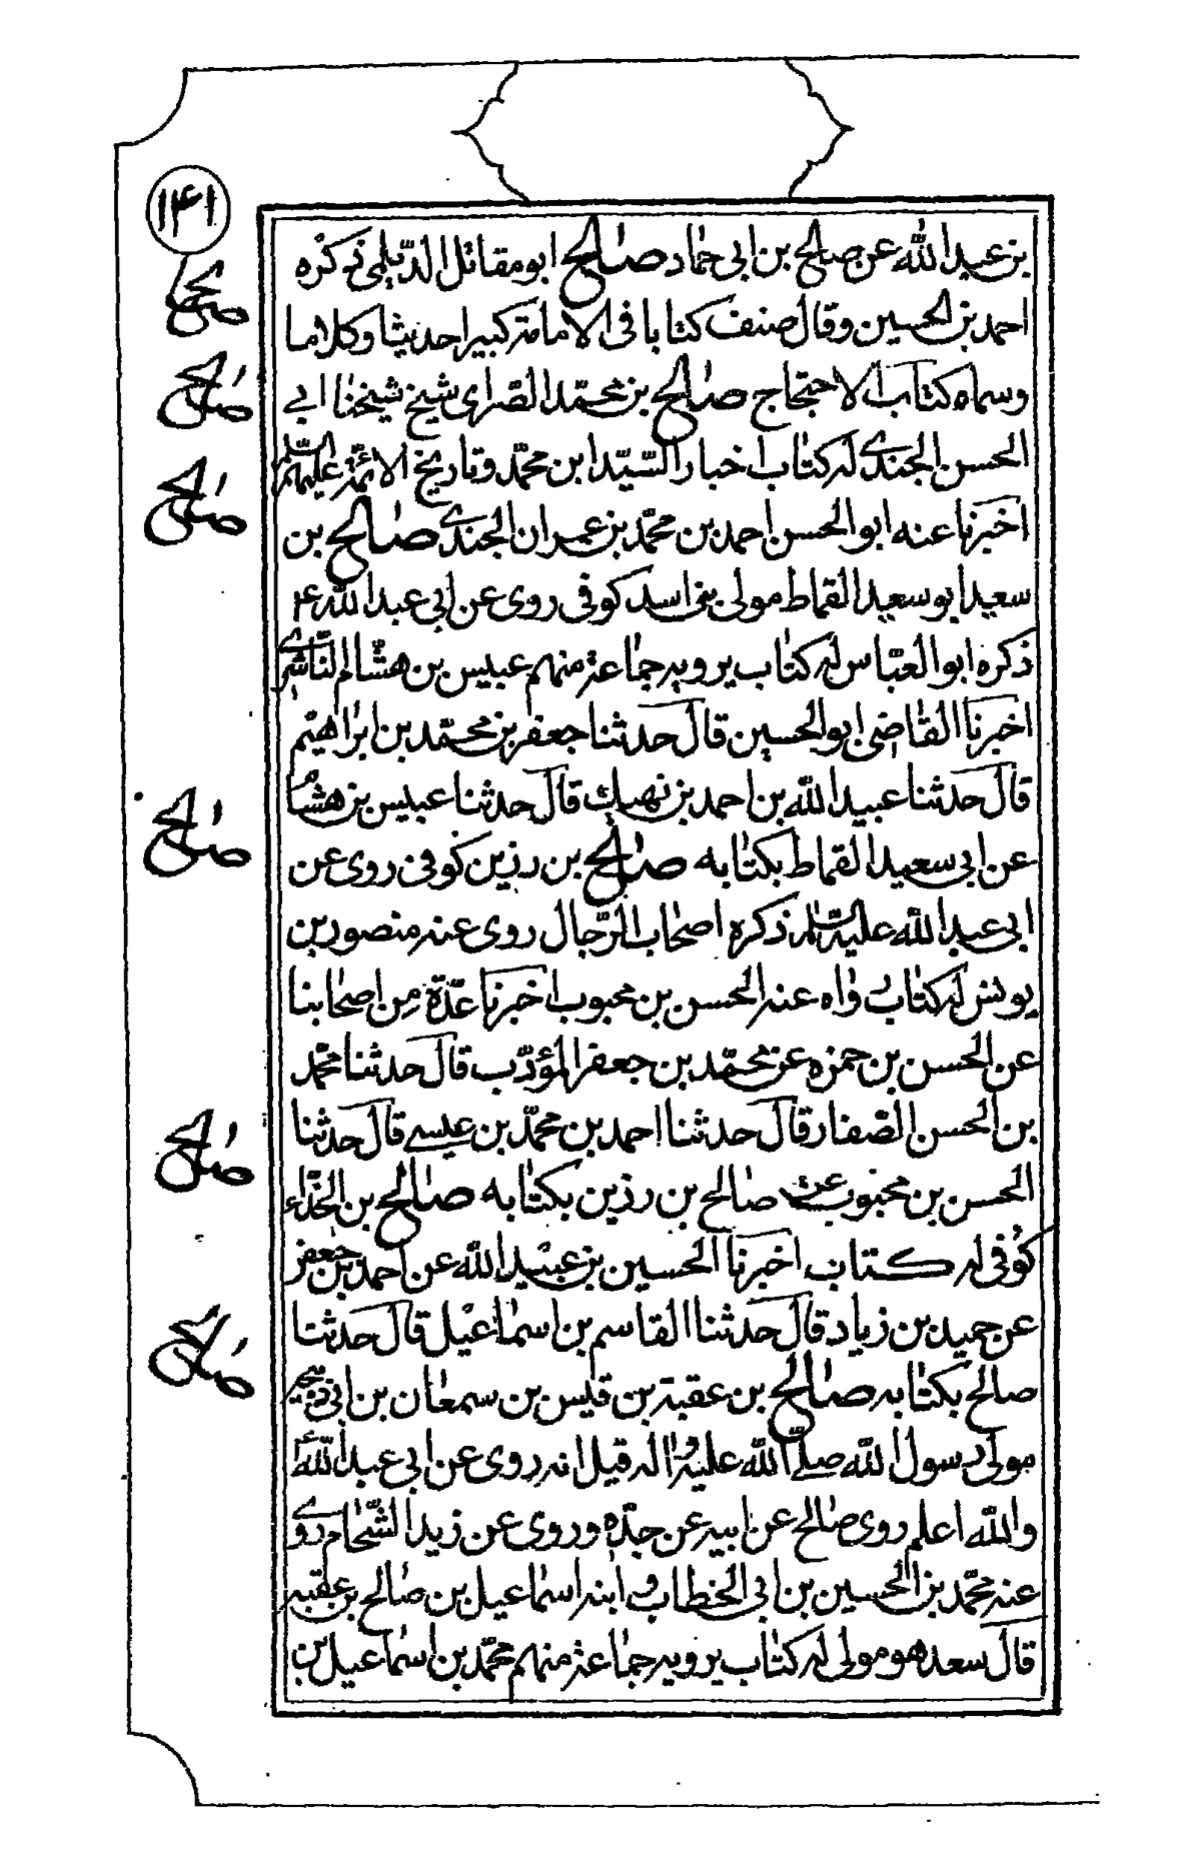 ١۴١
بن عبد الله عن صالح بن ابى حماد صالح ابو مقاتل الديلمى ذكره
احمد بن الحسين وقال صنف كتابا فى الامامة كبيرا حديثا وكلاما
وسماه كتاب الاحتجاج صالح بن محمد الصراى شيخ شيخنا ابى
الحسن الجندى له كتاب اخبار السيد ابن محمد وتاريخ الائمة عليهم السلم
اخبرنا عنه ابو الحسن احمد بن محمد بن عمران الجندى صالح بن
سعيد ابو سعيد القماط مولى بنى اسد كوفى روى عن ابى عبد الله ع
ذكره ابو العباس له كتاب يرويه جماعة منهم عبيس بن هشام الناشرى
اخبرنا القاضى ابو الحسين قال حدثنا جعفر بن محمد بن ابراهيم
قال حدثنا عبيد الله بن احمد بن نهيك قال حدثنا عبيس بن هشام
عن ابى سعيد القماط بكتابه صالح بن رزين كوفى روى عن
ابى عبد الله عليه السلم ذكره اصحاب الرجال روى عنه منصور بن
يونس له كتاب رواه عنه الحسن بن محبوب اخبرنا عدة من اصحابنا
عن الحسن بن حمزه عن محمد بن جعفر المؤدب قال حدثنا محمد
بن الحسن الصفار قال حدثنا احمد بن محمد بن عيسى قال حدثنا
الحسن بن محبوب عن صالح بن رزين بكتابه صالح بن الحذاء
كوفى له كتاب اخبرنا الحسين بن عبيد الله عن احمد بن جعفر
عن حميد بن زياد قال حدثنا القاسم بن اسماعيل قال حدثنا
صالح بكتابه صالح بن عقبة بن قيس بن سمعان بن ابى ذبيحة
مولى رسول الله صلى الله عليه واله قيل انه روى عن ابى عبد الله ع
والله اعلم روى صالح عن ابيه عن جده وروى عن زيد الشحام روى
عنه محمد بن الحسين بن ابى الخطاب وابنه اسماعيل بن صالح بن عقبة
قال سعد هو مولى له كتاب يرويه جماعة منهم محمد بن اسماعيل بن
صالح
صالح
صالح
صالح
صالح
صالح